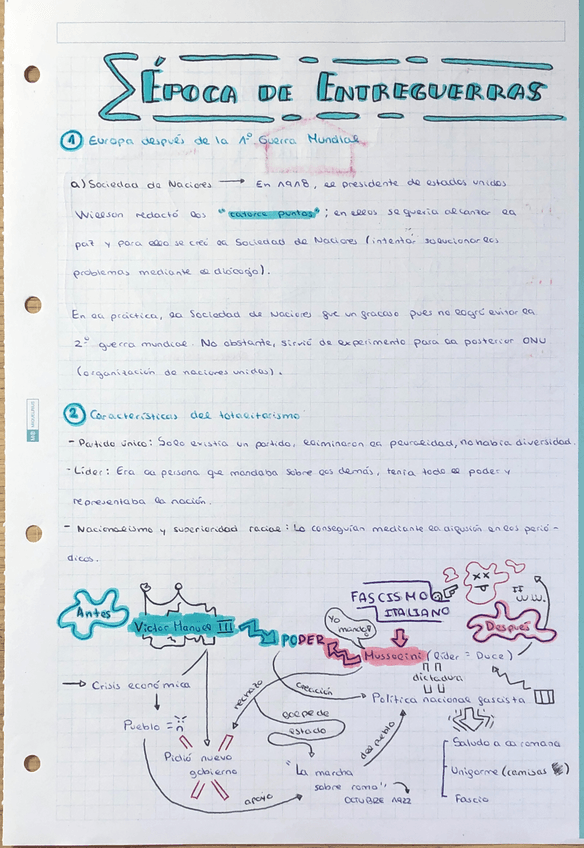 ÉPOCA DE ENTREGUERRAS
1 Europa después de la 1º Guerra Mundial
a) Sociedad de Naciones → En 1918, el presidente de estados unidos
Willson redactó los "catorce puntos"; en ellos se quería alcanzar la
paz y para ello se creó la Sociedad de Naciones (intentar solucionar los
problemas mediante el diálogo).
En la práctica, la Sociedad de Naciones fue un fracaso pues no logró evitar la
2º guerra mundial. No obstante, sirvió de experimento para la posterior ONU
(organización de naciones unidas).
2 Características del totalitarismo
- Partido único: Solo existía un partido, eliminaron la pluralidad, no había diversidad.
- Líder: Era la persona que mandaba sobre los demás, tenía todo el poder y
representaba la nación.
- Nacionalismo y superioridad racial: Lo conseguían mediante la difusión en los perió-
dicos.
Antes
Víctor Manuel III
PODER
Yo mando!
FASCISMO
ITALIANO
II
Después
Mussolini (líder = Duce)
dictadura
→ Crisis económica
Pueblo =
Pidió nuevo
gobierno
rechazo
creación
golpe de
estado
Política nacional fascista
del pueblo
apoyo
"La marcha
sobre roma"
OCTUBRE 1922
Saludo a la romana
Uniforme (camisas )
Fascio